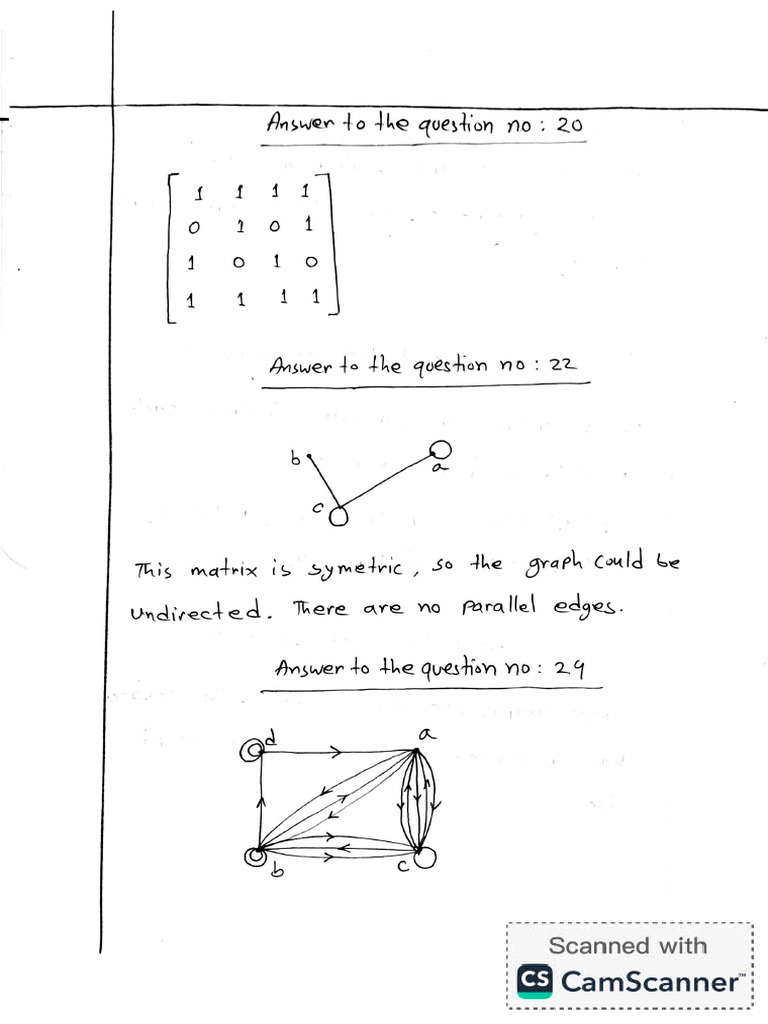 Answer to the question no : 20
1 1 1 1
0 1 0 1
1 0 1 0
1 1 1 1
Answer to the question no : 22
b
a
c
This matrix is symetric, so the graph could be
undirected. There are no parallel edges.
Answer to the question no : 29
d a
b c
Scanned with
CS CamScanner™